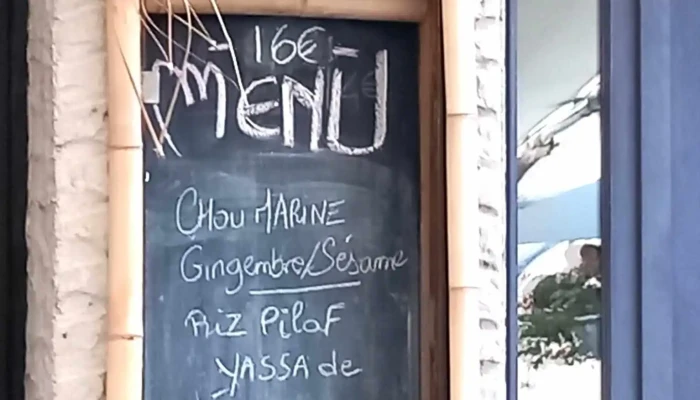 - 16€ -
MENU
CHOU MARINE
Gingembre/Sésame
RIZ Pilaf
YASSA de